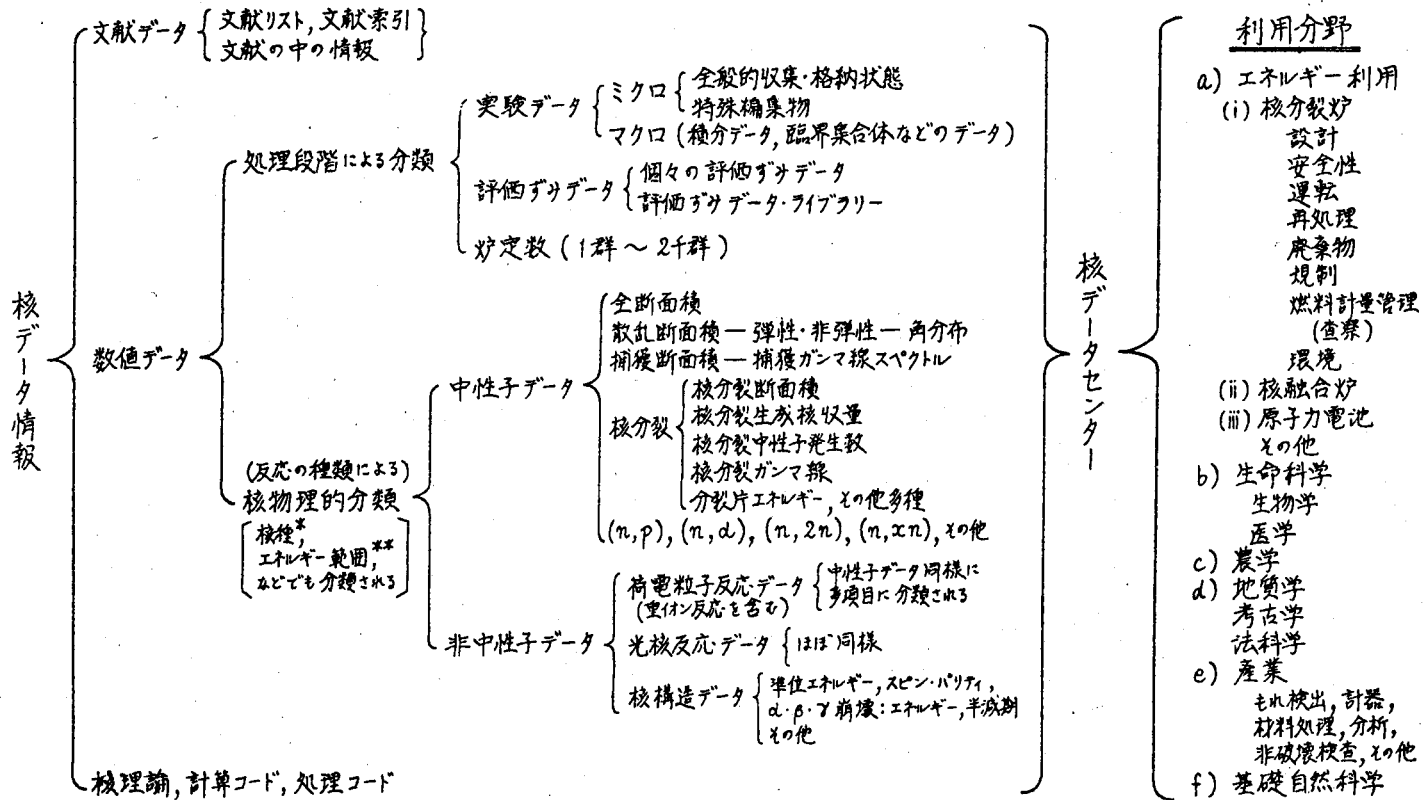 核データ情報
文献データ
文献リスト, 文献索引
文献の中の情報
数値データ
処理段階による分類
実験データ
ミクロ
全般的収集・格納状態
特殊編集物
マクロ (積分データ, 臨界集合体などのデータ)
評価ずみデータ
個々の評価ずみデータ
評価ずみデータ・ライブラリー
炉定数 (1群 〜 2千群)
(反応の種類による)
核物理的分類
核種,*
エネルギー範囲,**
などでも分類される
中性子データ
全断面積
散乱断面積 — 弾性・非弾性 — 角分布
捕獲断面積 — 捕獲ガンマ線スペクトル
核分裂
核分裂断面積
核分裂生成核収量
核分裂中性子発生数
核分裂ガンマ線
分裂片エネルギー, その他多種
(n,p), (n,α), (n,2n), (n,xn), その他
非中性子データ
荷電粒子反応データ
(重イオン反応を含む)
中性子データ同様に
多項目に分類される
光核反応データ
ほぼ同様
核構造データ
準位エネルギー, スピン・パリティ,
α・β・γ崩壊: エネルギー, 半減期
その他
核理論, 計算コード, 処理コード
核データセンター
利用分野
a) エネルギー利用
(i) 核分裂炉
設計
安全性
運転
再処理
廃棄物
規制
燃料計量管理
(査察)
環境
(ii) 核融合炉
(iii) 原子力電池
その他
b) 生命科学
生物学
医学
c) 農学
d) 地質学
考古学
法科学
e) 産業
もれ検出, 計器,
材料処理, 分析,
非破壊検査, その他
f) 基礎自然科学